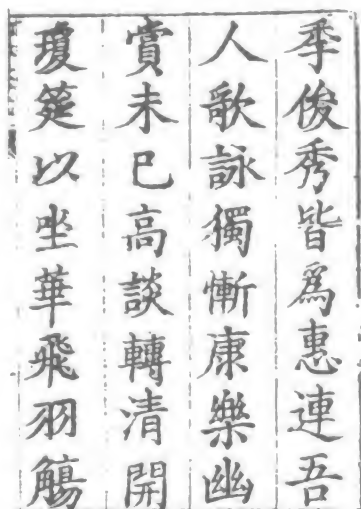 季俊秀皆爲惠連吾
人歌詠獨慚康樂幽
賞未已高談轉清開
瓊筵以坐華飛羽觴